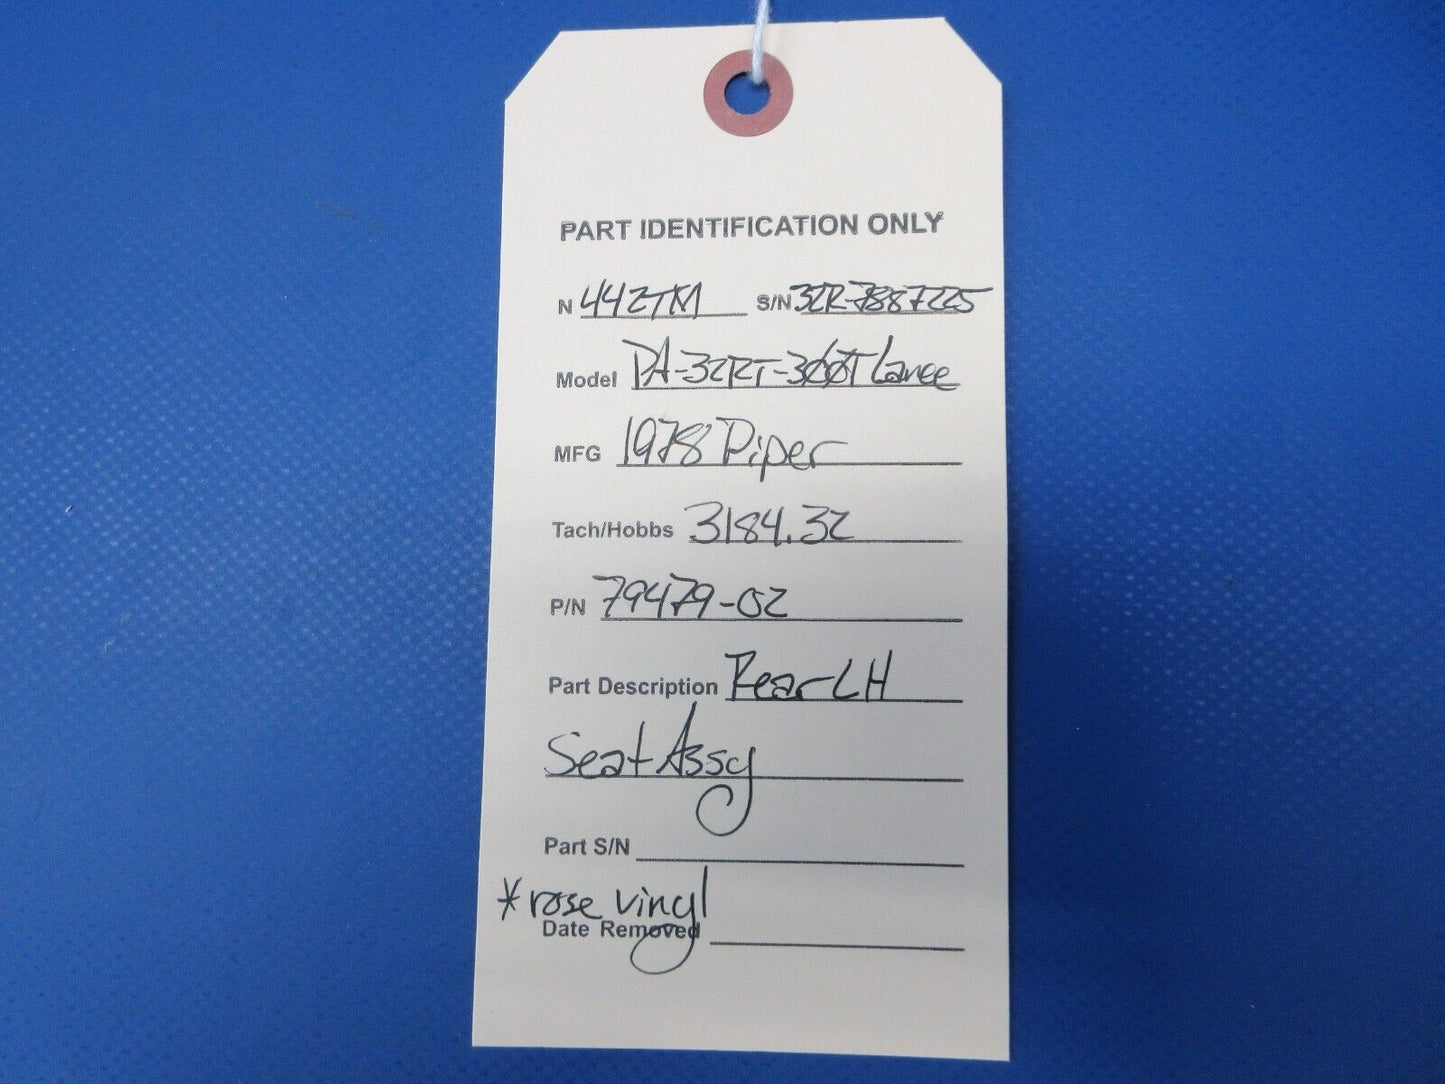 PART IDENTIFICATION ONLY
N 442TM S/N 32R-7887225
Model PA-32RT-300T Lance
MFG 1978 Piper
Tach/Hobbs 3184.32
P/N 79479-02
Part Description Rear LH
Seat Assy
Part S/N
*rose vinyl
Date Removed